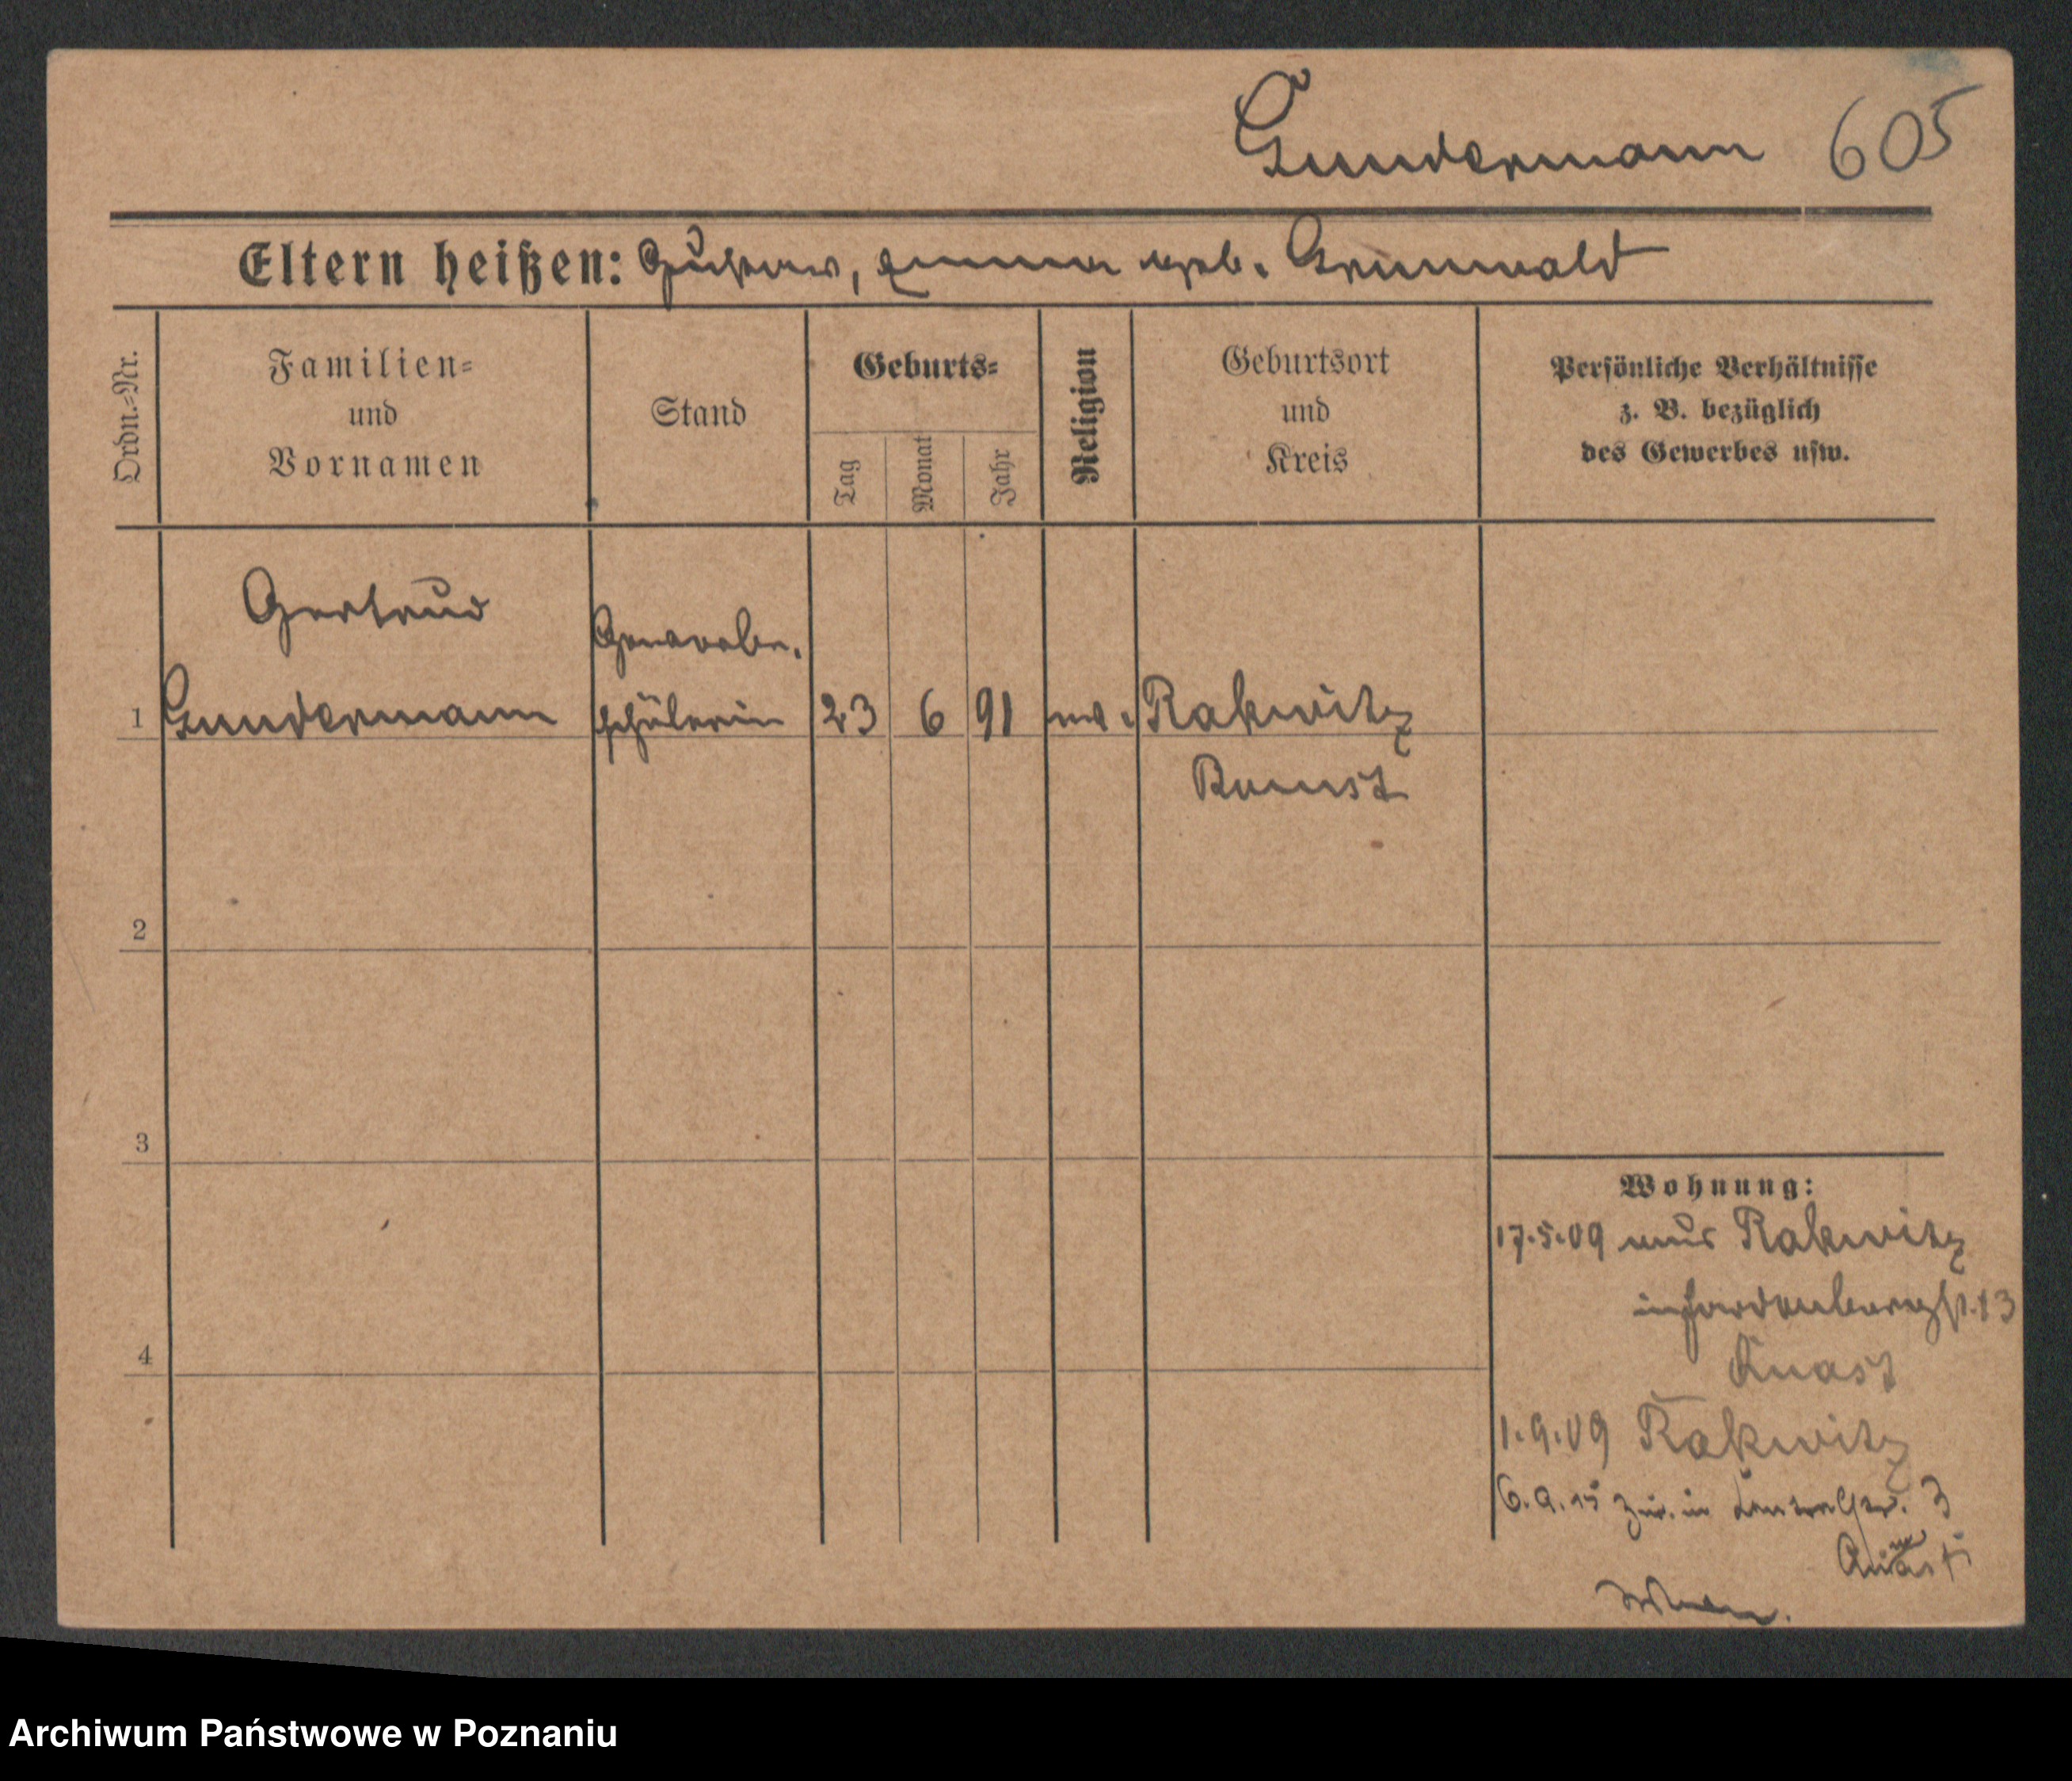 Gundermann 605
Eltern heißen: Gustav, Emma geb. Grunwald
Ordn.=Nr.
Familien=
und
Vornamen
Stand
Geburts=
Tag
Monat
Jahr
Religion
Geburtsort
und
Kreis
Persönliche Verhältnisse
z. B. bezüglich
des Gewerbes usw.
Gertrud
Gewerbe.
1 Gundermann schülerin 23 6 91 ev. Rakwitz
Bomst
2
3
4
Wohnung:
17.5.09 aus Rakwitz
in Hardenbergstr. 13
Knast
1.9.09 Rakwitz
6.9.15 zur. in Lentralstr. 3